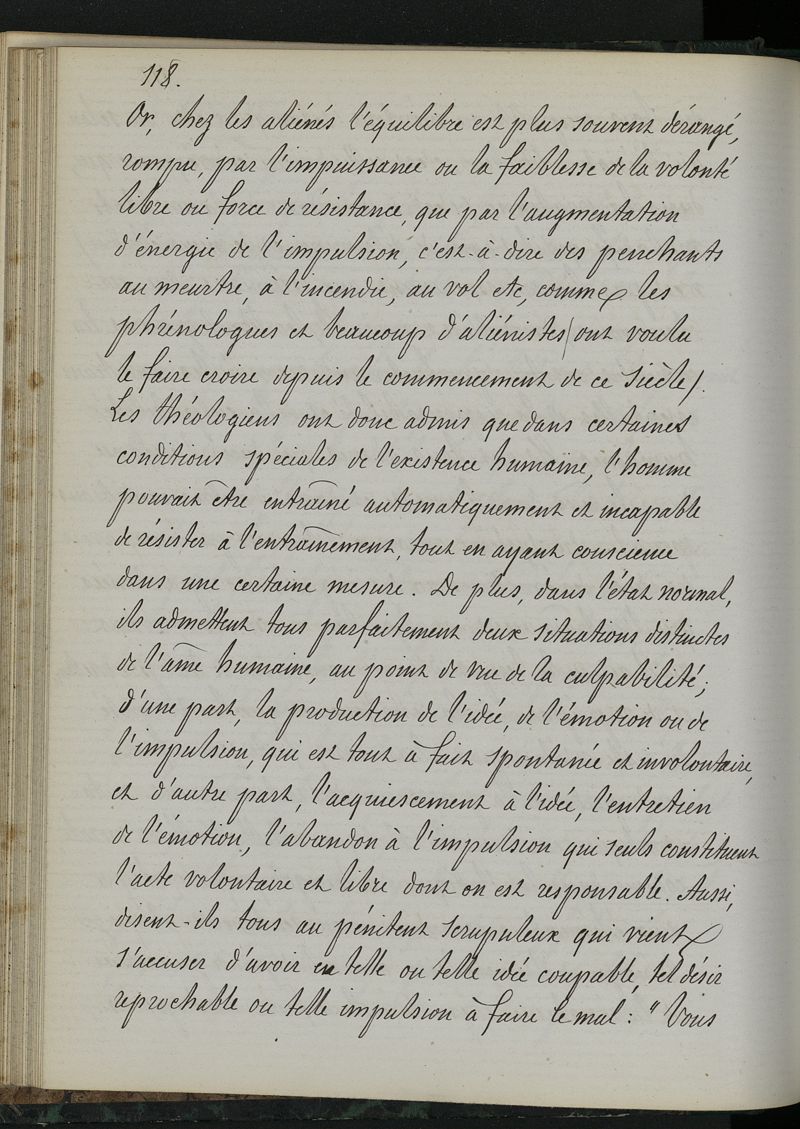 118.
Or, chez les aliénés l'équilibre est plus souvent dérangé,
rompu, par l'impuissance ou la faiblesse de la volonté
libre ou force de résistance, que par l'augmentation
d'énergie de l'impulsion, c'est-à-dire des penchants
au meurtre, à l'incendie, au vol etc, comme les
phrénologues et beaucoup d'aliénistes (ont voulu
le faire croire depuis le commencement de ce siècle).
Les théologiens ont donc admis que dans certaines
conditions spéciales de l'existence humaine, l'homme
pouvait être entraîné automatiquement et incapable
de résister à l'entraînement, tout en ayant conscience
dans une certaine mesure. De plus, dans l'état normal,
ils admettent tous parfaitement deux situations distinctes
de l'âme humaine, au point de vue de la culpabilité;
d'une part, la production de l'idée, de l'émotion ou de
l'impulsion, qui est tout à fait spontanée et involontaire,
et d'autre part, l'acquiescement à l'idée, l'entretien
de l'émotion, l'abandon à l'impulsion qui seuls constituent
l'acte volontaire et libre dont on est responsable. Aussi,
disent-ils tous au pénitent scrupuleux qui vient
s'accuser d'avoir eu telle ou telle idée coupable, tel désir
reprochable ou telle impulsion à faire le mal : " Vous